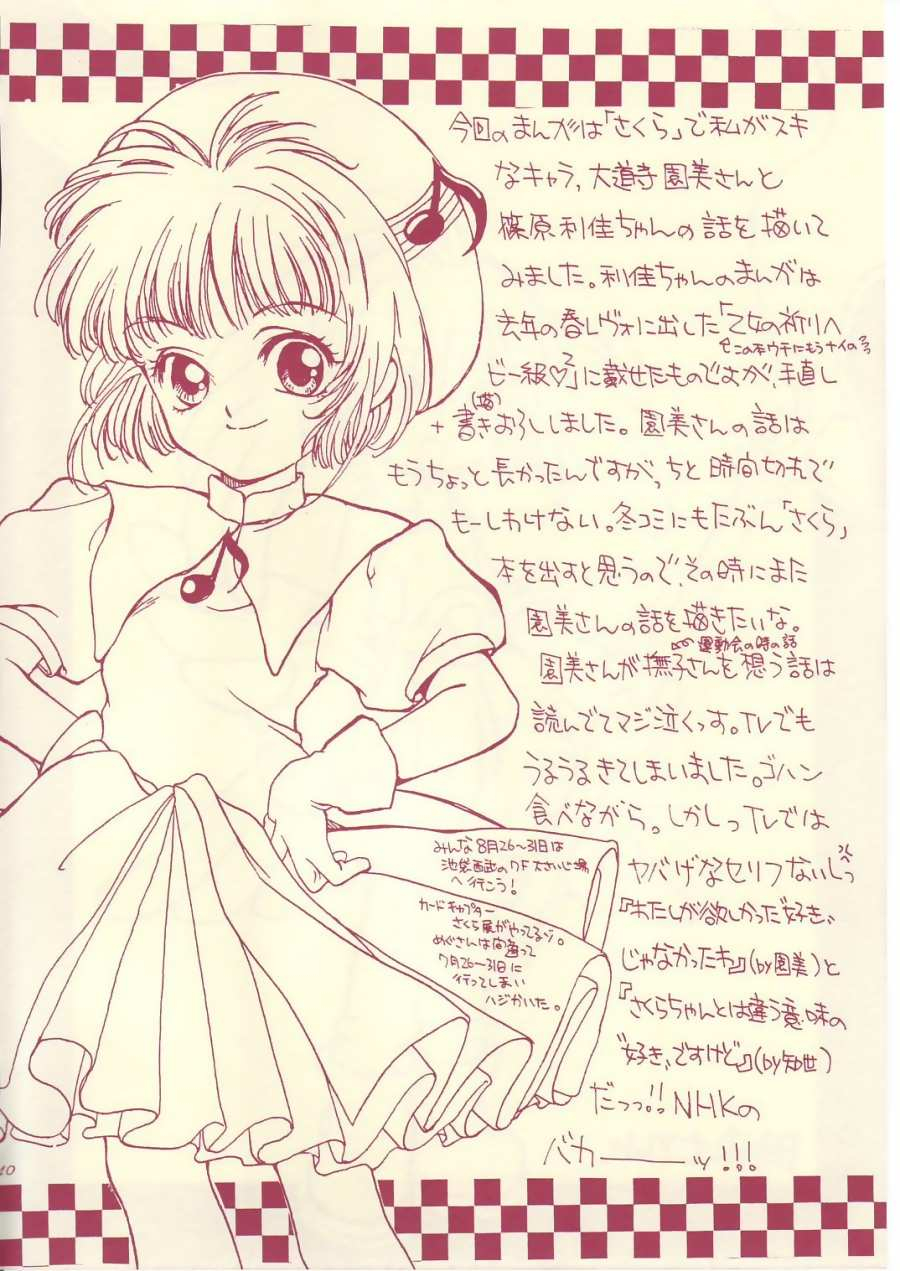 今回のまんがは「さくら」で私がスキ
なキャラ、大道寺園美さんと
篠原利佳ちゃんの話を描いて
みました。利佳ちゃんのまんがは
去年の春レヴォに出した「乙女の祈り
この本ウチにもうナイの
ビー級♡」に載せたものですが、手直し
+書(描)きおろししました。園美さんの話は
もうちょっと長かったんですが、ちと時間切れで
もーしわけない。冬コミにもたぶん「さくら」
本を出すと思うので、その時にまた
園美さんの話を描きたいな。
運動会の時の話
園美さんが撫子さんを想う話は
読んでてマジ泣くっす。TVでも
うるうるきてしまいました。ゴハン
食べながら。しかしっTVでは
ヤバげなセリフないしっ
『わたしが欲しかった〝好き〟
じゃなかったわ』(by園美)と
『さくらちゃんとは違う意味の
〝好き〟ですけど』(by知世)
だっっ!!NHKの
バカーーーッ!!!
みんな8月26〜31日は
池袋西武の7F大さいじ場
へ行こう!
カードキャプター
さくら展がやってるゾ。
めぐさんは間違って
7月26〜31日に
行ってしまい
ハジかいた。
40